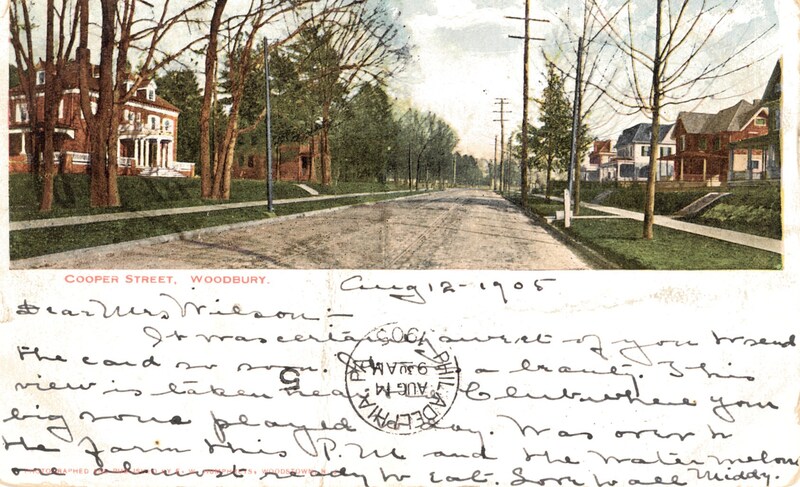 COOPER STREET, WOODBURY.
Aug 12-1905
Dear Mrs Wilson:-
It was certainly sweet of you to send
the card so soon. a beauty. This
view is taken near Club where your
big sone played day. Was over to
the farm this P.M and the watermelons
are almost ready to eat. Love to all Middy.
PHILADELPHIA, PA.
AUG 14
9 30 AM
1905
5